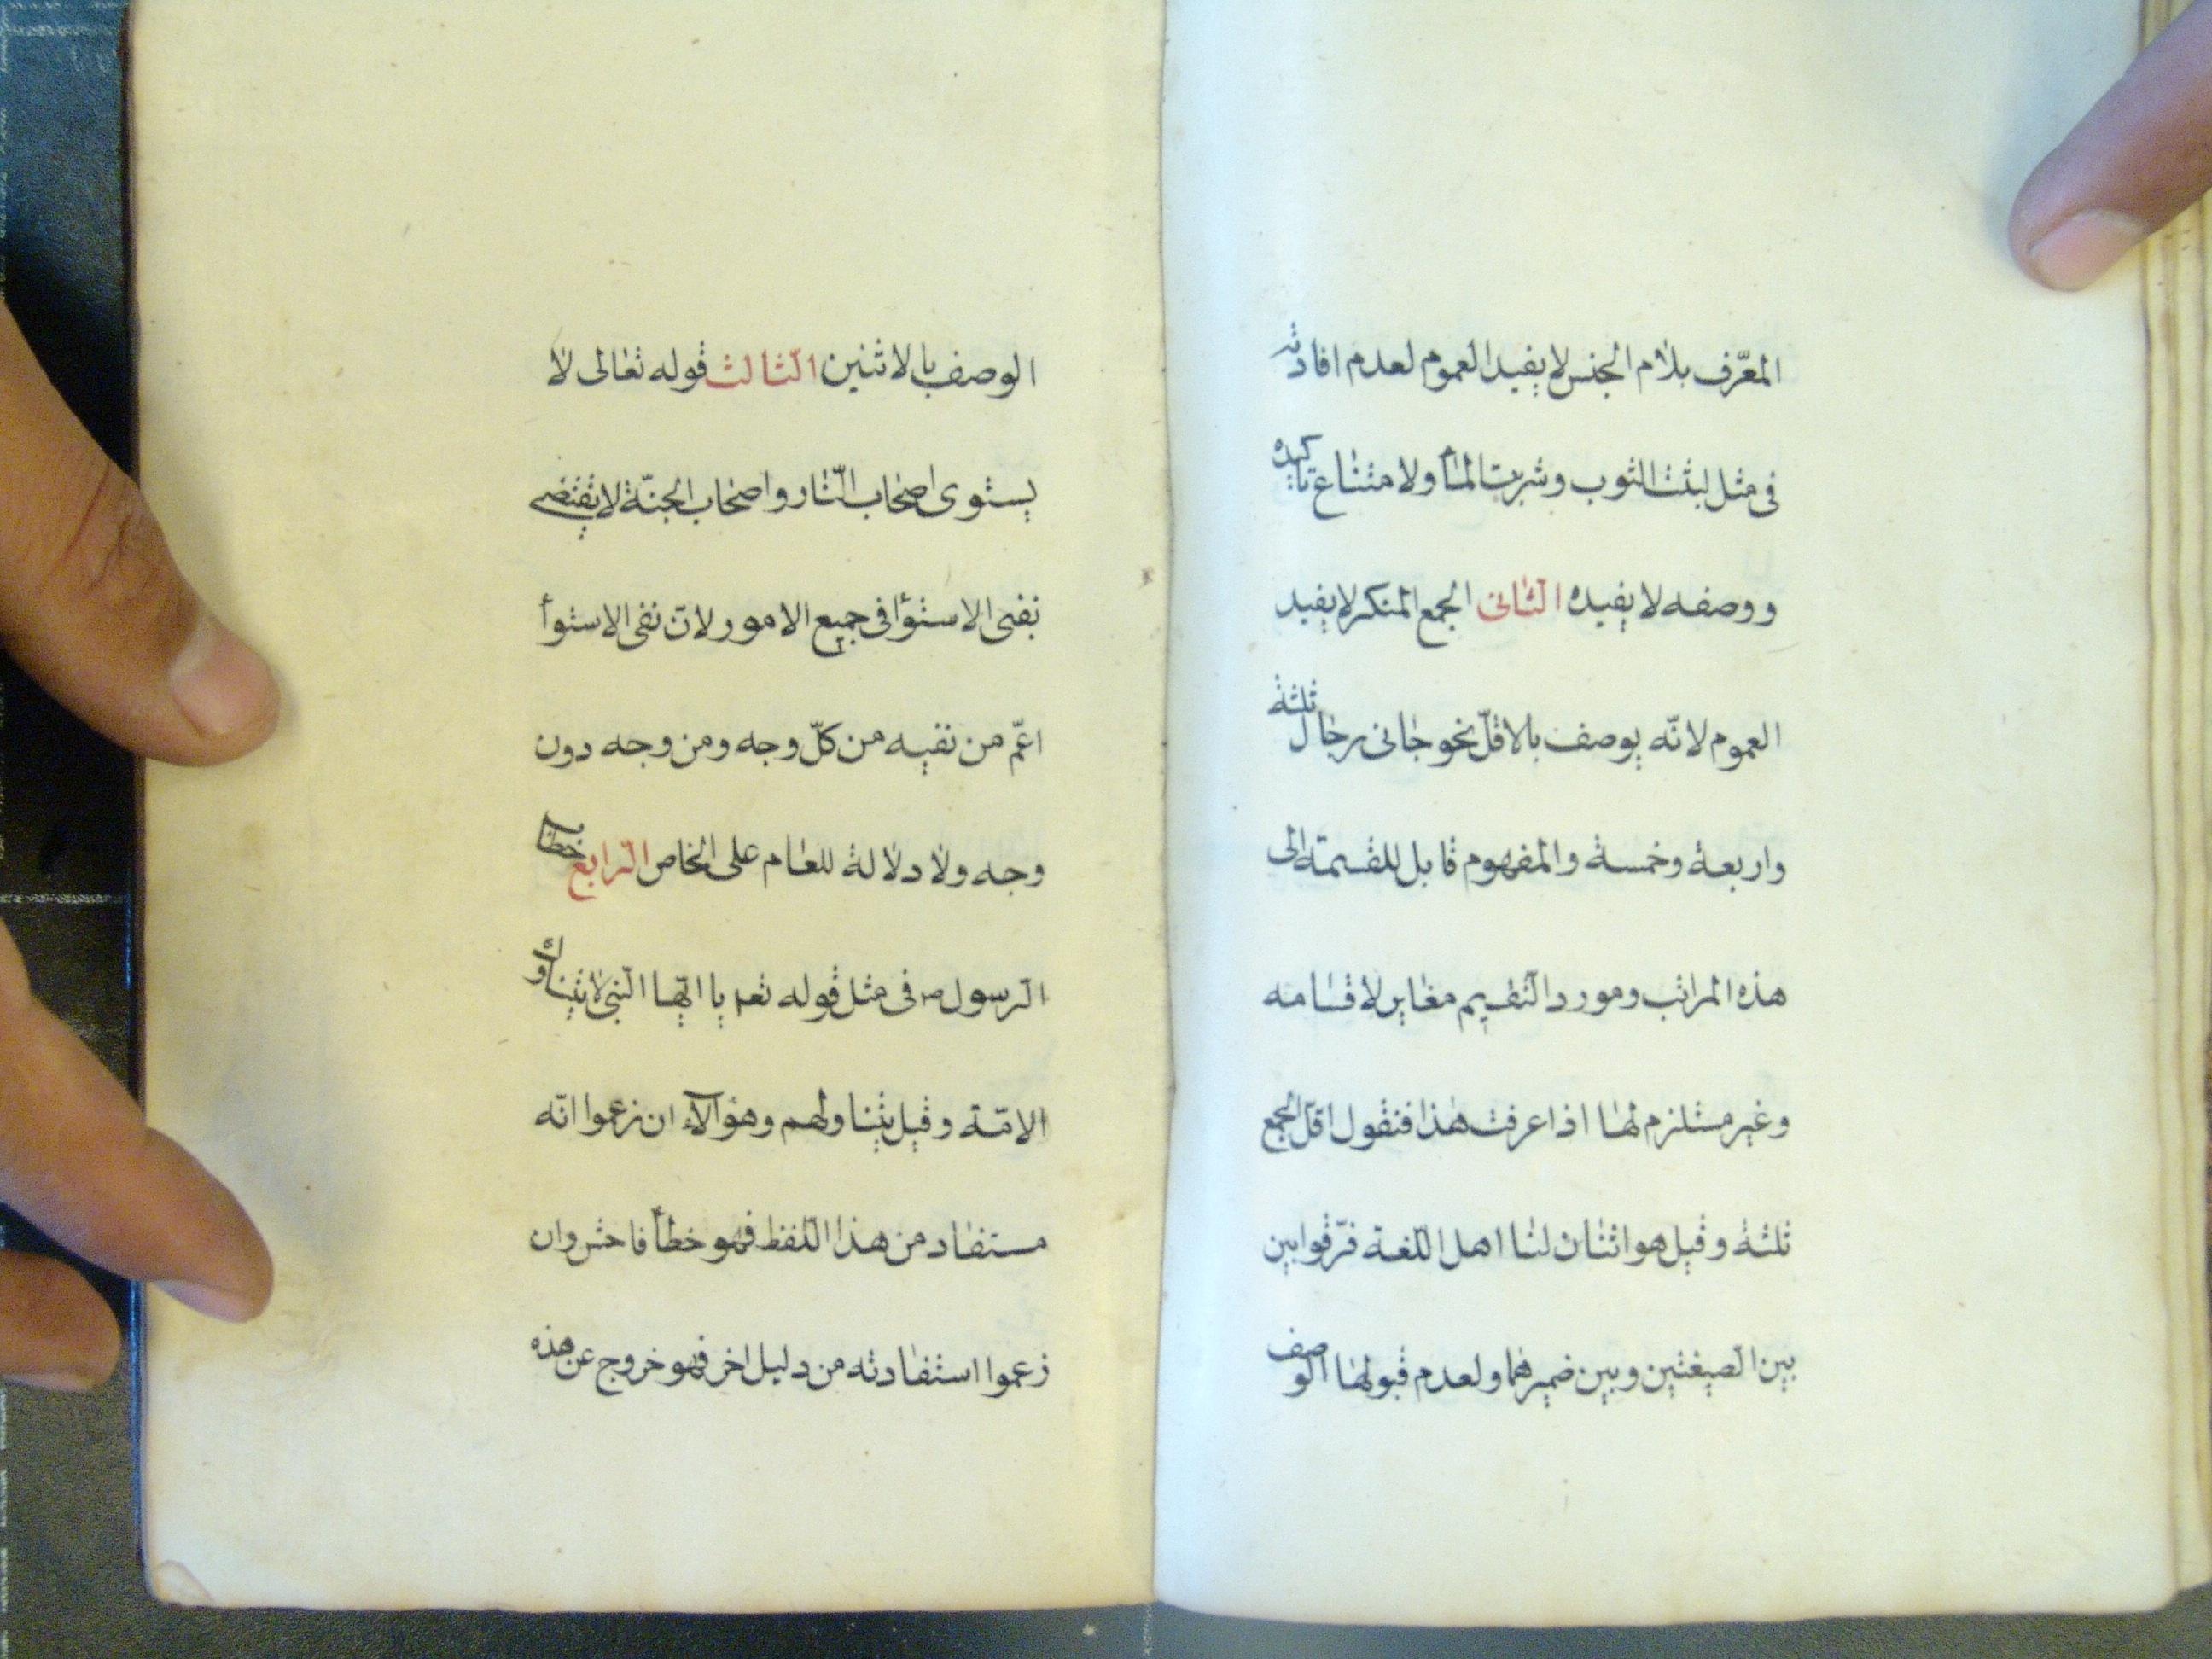 المعرّف بلام الجنس لا يفيد العموم لعدم افادته
فى مثل لبثت الثوب وشربت المأ ولا متناع تاكيده
ووصفه لا يفيده الثانى الجمع المنكر لا يفيد
العموم لانّه يوصف بالاقلّ نحو جانى رجال ثلثة
واربعة وخمسة والمفهوم قابل للقسمة الى
هذه المراتب ومورد التقسيم مغاير لاقسامه
وغير مستلزم لها اذا عرفت هذا فنقول اقلّ الجمع
ثلثة وقيل هو اثنان لنا اهل اللغة فرّقوا بين
بين الصيغتين وبين ضميرهما ولعدم قبولها الوصف
الوصف بالاثنين الثالث قوله تعالى لا
يستوى اصحاب النّار واصحاب الجنّة لا يقتضى
نفى الاستؤا فى جميع الامور لانّ نفى الاستوأ
اعمّ من نفيه من كلّ وجه ومن وجه دون
وجه ولا دلالة للعام على الخاص الرابع خطاب
الرسول ص فى مثل قوله تعم يا ايّها النّبى لا يتناول
الامّة وقيل يتناولهم وهؤالآء ان زعموا انّه
مستفاد من هذا اللّفظ فهو خطأ فاحش وان
زعموا استفادته من دليل اخر فهو خروج عن هذه